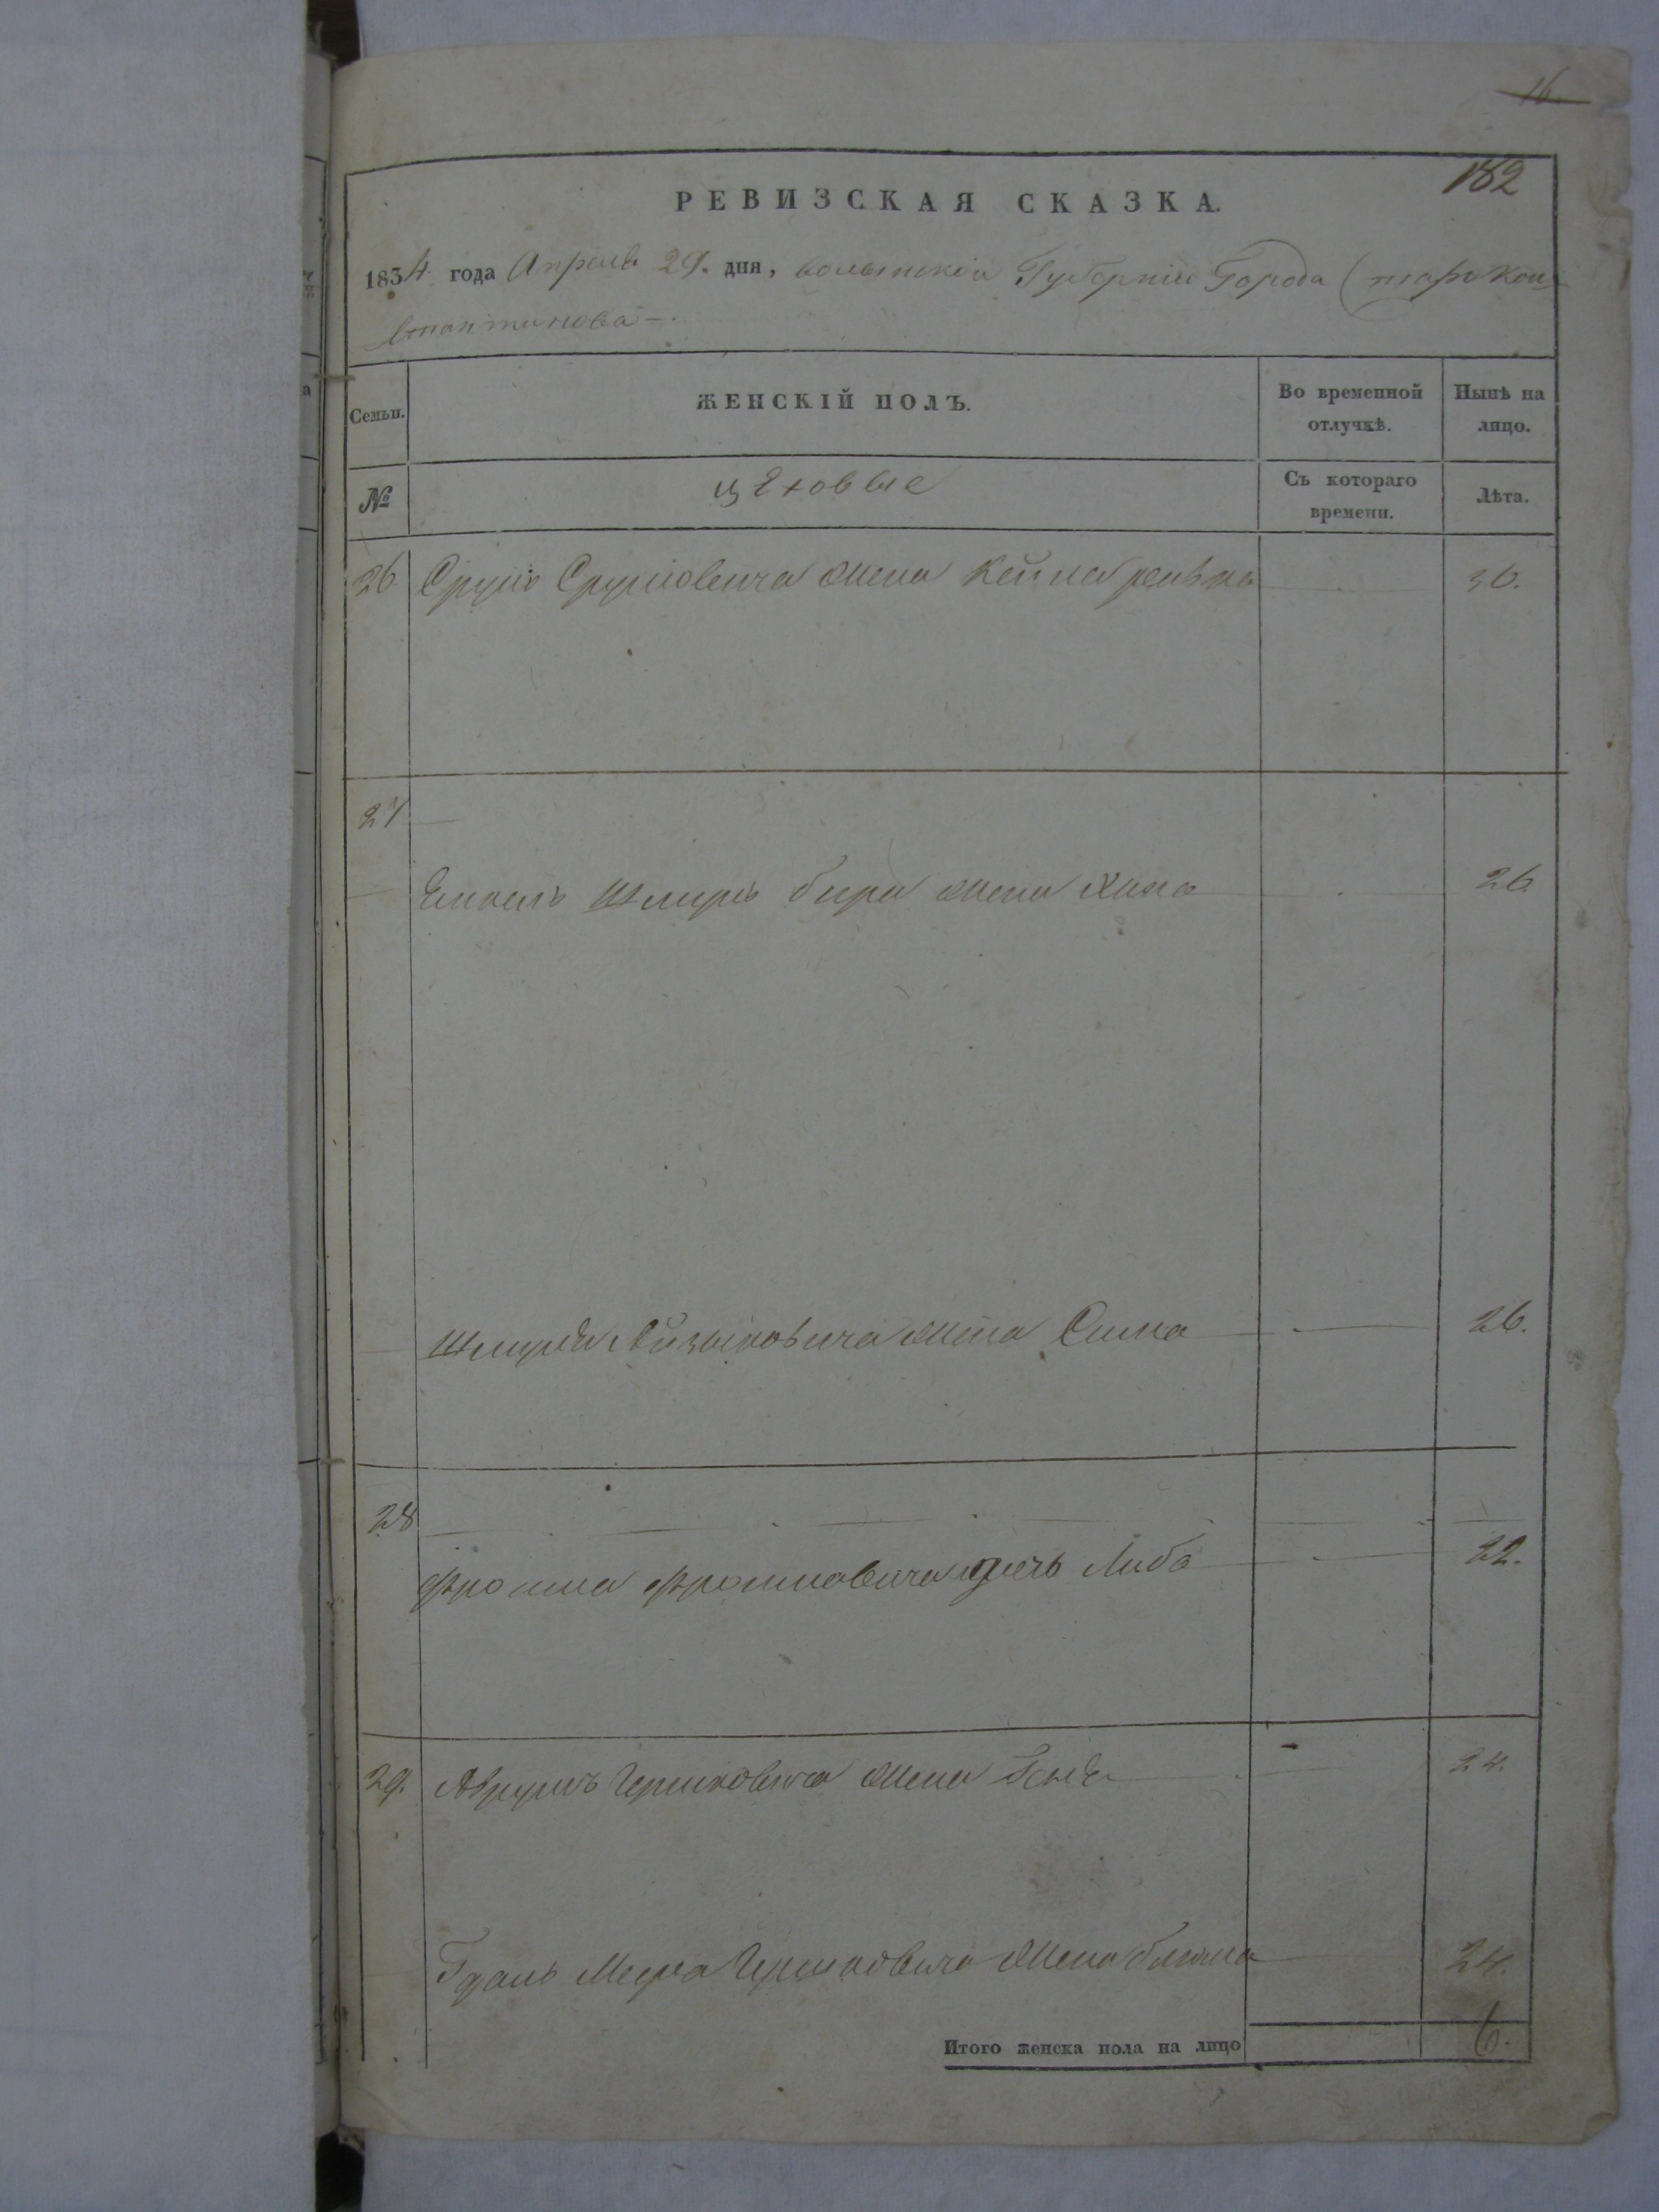 16.
182
РЕВИЗСКАЯ СКАЗКА.
1834 года Апреля 29. дня, волынской Губернии Города Старо Кон-
стантинова
Семьи. ЖЕНСКІЙ ПОЛЪ. Во временной отлучкѣ. Нынѣ на лицо.
№ цеховые Съ котораго времени. Лѣта.
26. Сруля Срулiовича жена Кейла 30.
27
Шлиома бера жена Хина 26.
Айзыковича жена Сима 26.
28
Фроима Фроимовича дочь Либа 22.
29. Гершковича жена 24.
Меера Гершковича жена 24.
Итого женска пола на лицо 6.